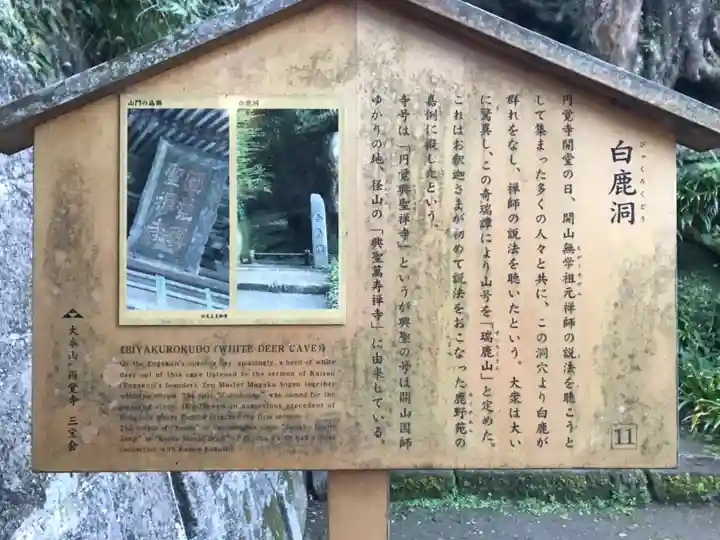 白鹿洞
びゃくろくどう
円覚寺開堂の日、開山無学祖元禅師の説法を聴こうと
して集まった多くの人々と共に、この洞穴より白鹿が
群れをなし、禅師の説法を聴いたという。大衆は大い
に驚異し、この奇瑞譚により山号を「瑞鹿山」と定めた。
これはお釈迦さまが初めて説法をおこなった鹿野苑の
嘉例に擬したという。
寺号は「円覚興聖禅寺」というが興聖の号は開山国師
ゆかりの地、径山の「興聖萬寿禅寺」に由来している。
11
山門の扁額
白鹿洞
《BIYAKUROKUDO (WHITE DEER CAVE)》
On the Engakuji's opening day, amazingly, a herd of white
deer out of this cave listened to the sermon of Kaisan
(Engakuji's founder), Zen Master Mugaku Sogen together
大本山 円覚寺 三宝会